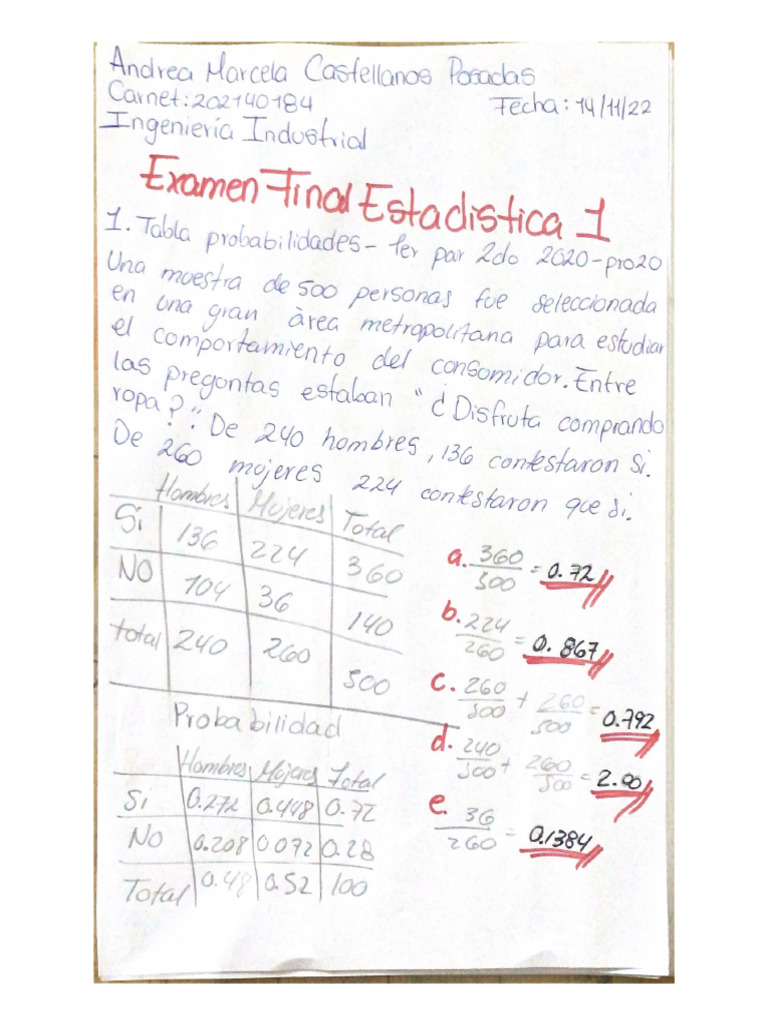 Andrea Marcela Castellanos Posadas
Carnet: 202140184 Fecha: 14/11/22
Ingeniería Industrial
Examen Final Estadística 1
1. Tabla probabilidades - 1er par 2do 2020-pro20
Una muestra de 500 personas fue seleccionada
en una gran àrea metropolitana para estudiar
el comportamiento del consumidor. Entre
las pregontas estaban "¿Disfruta comprando
ropa?". De 240 hombres, 136 contestaron Si.
De 260 mujeres 224 contestaron que si.
Hombres Mujeres Total
Si 136 224 360
NO 104 36 140
total 240 260 500
a. 360/500 = 0.72
b. 224/260 = 0.867
c. 260/500 + 260/500 = 0.792
d. 240/500 + 260/500 = 2.00
e. 36/260 = 0.1384
Probabilidad
Hombres Mujeres Total
Si 0.272 0.448 0.72
No 0.208 0.072 0.28
Total 0.48 0.52 100